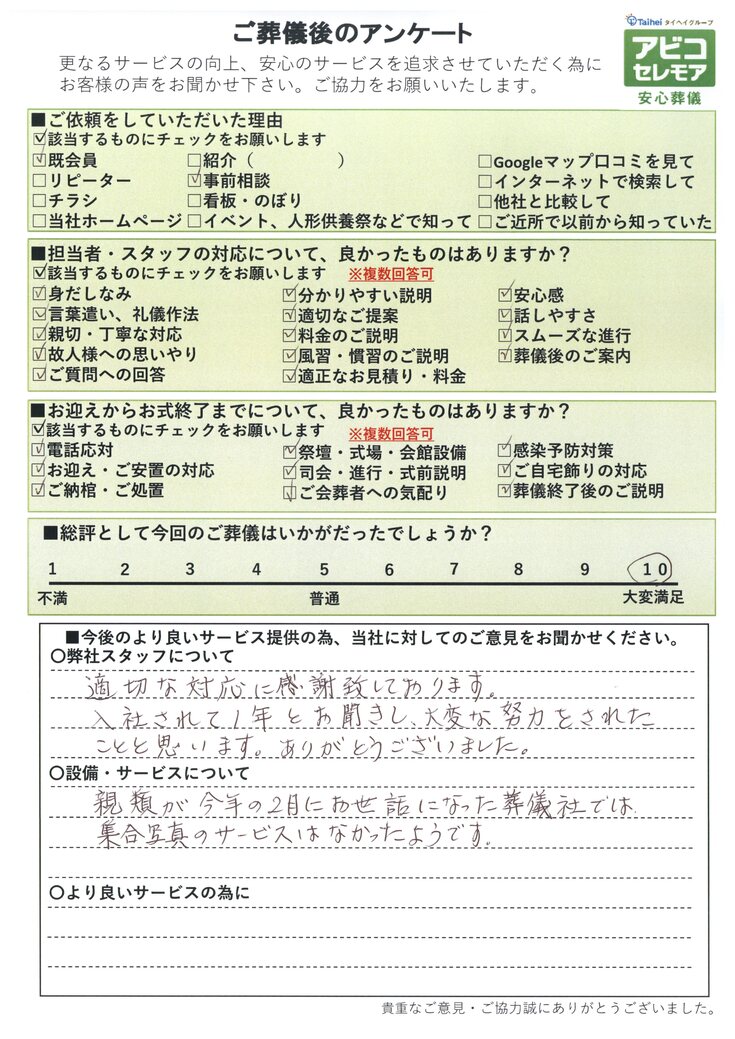 ご葬儀後のアンケート
Taihei タイヘイグループ
アビコ
セレモア
安心葬儀
更なるサービスの向上、安心のサービスを追求させていただく為に
お客様の声をお聞かせ下さい。ご協力をお願いいたします。
■ご依頼をしていただいた理由
☑該当するものにチェックをお願いします
☑既会員 □紹介（　　　　　） □Googleマップ口コミを見て
□リピーター ☑事前相談 □インターネットで検索して
□チラシ □看板・のぼり □他社と比較して
□当社ホームページ □イベント、人形供養祭などで知って □ご近所で以前から知っていた
■担当者・スタッフの対応について、良かったものはありますか？
☑該当するものにチェックをお願いします ※複数回答可
☑身だしなみ ☑分かりやすい説明 ☑安心感
☑言葉遣い、礼儀作法 ☑適切なご提案 ☑話しやすさ
☑親切・丁寧な対応 ☑料金のご説明 ☑スムーズな進行
☑故人様への思いやり ☑風習・慣習のご説明 ☑葬儀後のご案内
☑ご質問への回答 ☑適正なお見積り・料金
■お迎えからお式終了までについて、良かったものはありますか？
☑該当するものにチェックをお願いします ※複数回答可
☑電話応対 ☑祭壇・式場・会館設備 ☑感染予防対策
☑お迎え・ご安置の対応 ☑司会・進行・式前説明 ☑ご自宅飾りの対応
☑ご納棺・ご処置 ☑ご会葬者への気配り ☑葬儀終了後のご説明
■総評として今回のご葬儀はいかがだったでしょうか？
1 2 3 4 5 6 7 8 9 10
不満 普通 大変満足
■今後のより良いサービス提供の為、当社に対してのご意見をお聞かせください。
〇弊社スタッフについて
適切な対応に感謝致しております。
入社されて1年とお聞きし、大変な努力をされた
ことと思います。ありがとうございました。
〇設備・サービスについて
親類が今年の2月にお世話になった葬儀社では
集合写真のサービスはなかったようです。
〇より良いサービスの為に
貴重なご意見・ご協力誠にありがとうございました。